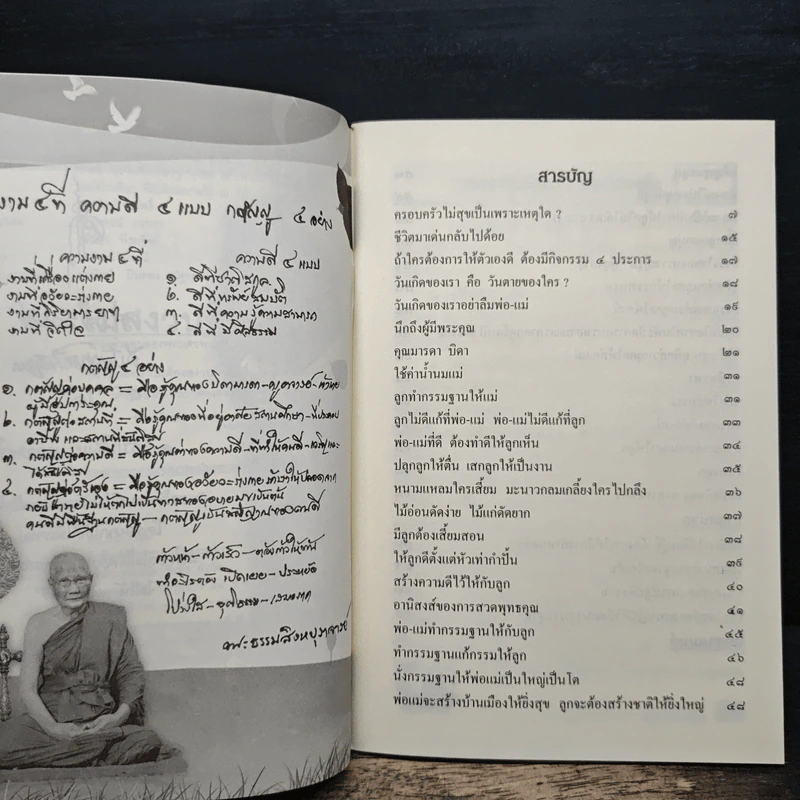 งาม ๔ ที่ ความดี ๔ แบบ กตัญญู ๔ อย่าง
ความงาม ๔ ที่
งามที่เครื่องแต่งกาย
งามที่อวัยวะร่างกาย
งามที่กิริยามารยาท
งามที่จิตใจ
ความดี ๔ แบบ
๑. ดีที่ชาติสกุล
๒. ดีที่ทรัพย์สมบัติ
๓. ดีที่ความรู้ความสามารถ
๔. ดีที่มีศีลธรรม
กตัญญู ๔ อย่าง
๑. กตัญญูต่อบุคคล = คือรู้คุณของบิดามารดา-ครูอาจารย์-
ผู้มีอุปการะคุณ
๒. กตัญญูต่อสถานที่ = คือรู้คุณของที่อยู่อาศัยสถานศึกษา-ที่ประกอบ
อาชีพ และสถานที่
๓. กตัญญูต่อความดี = คือรู้คุณค่าของความดี-ที่ทำให้คนดี-
๔. กตัญญูต่อตัวเอง = คือรู้คุณของอวัยวะร่างกาย
ก้าวหน้า-ก้าวเร็ว-
เปิดเผย-ประหยัด
โปร่งใส-ยุติธรรม-
พระธรรมสิงหบุราจารย์
สารบัญ
ครอบครัวไม่สุขเป็นเพราะเหตุใด ? ๗
ชีวิตมาเด่นกลับไปด้อย ๑๕
ถ้าใครต้องการให้ตัวเองดี ต้องมีกิจกรรม ๔ ประการ ๑๗
วันเกิดของเรา คือ วันตายของใคร ? ๑๘
วันเกิดของเราอย่าลืมพ่อ-แม่ ๑๙
นึกถึงผู้มีพระคุณ ๒๐
คุณมารดา บิดา ๒๑
ใช้ค่าน้ำนมแม่ ๓๑
ลูกทำกรรมฐานให้แม่ ๓๑
ลูกไม่ดีแก้ที่พ่อ-แม่ พ่อ-แม่ไม่ดีแก้ที่ลูก ๓๓
พ่อ-แม่ที่ดี ต้องทำดีให้ลูกเห็น ๓๔
ปลุกลูกให้ตื่น เสกลูกให้เป็นงาน ๓๕
หนามแหลมใครเสี้ยม มะนาวกลมเกลี้ยงใครไปกลึง ๓๖
ไม้อ่อนดัดง่าย ไม้แก่ดัดยาก ๓๗
มีลูกต้องเสี้ยมสอน ๓๘
ให้ลูกดีตั้งแต่หัวเท่ากำปั้น ๓๙
สร้างความดีไว้ให้กับลูก ๔๐
อานิสงส์ของการสวดพุทธคุณ ๔๑
พ่อ-แม่ทำกรรมฐานให้กับลูก ๔๕
ทำกรรมฐานแก้กรรมให้ลูก ๔๖
นั่งกรรมฐานให้พ่อแม่เป็นใหญ่เป็นโต ๔๘
พ่อแม่จะสร้างบ้านเมืองให้ยิ่งสุข ลูกจะต้องสร้างชาติให้ยิ่งใหญ่ ๔๘